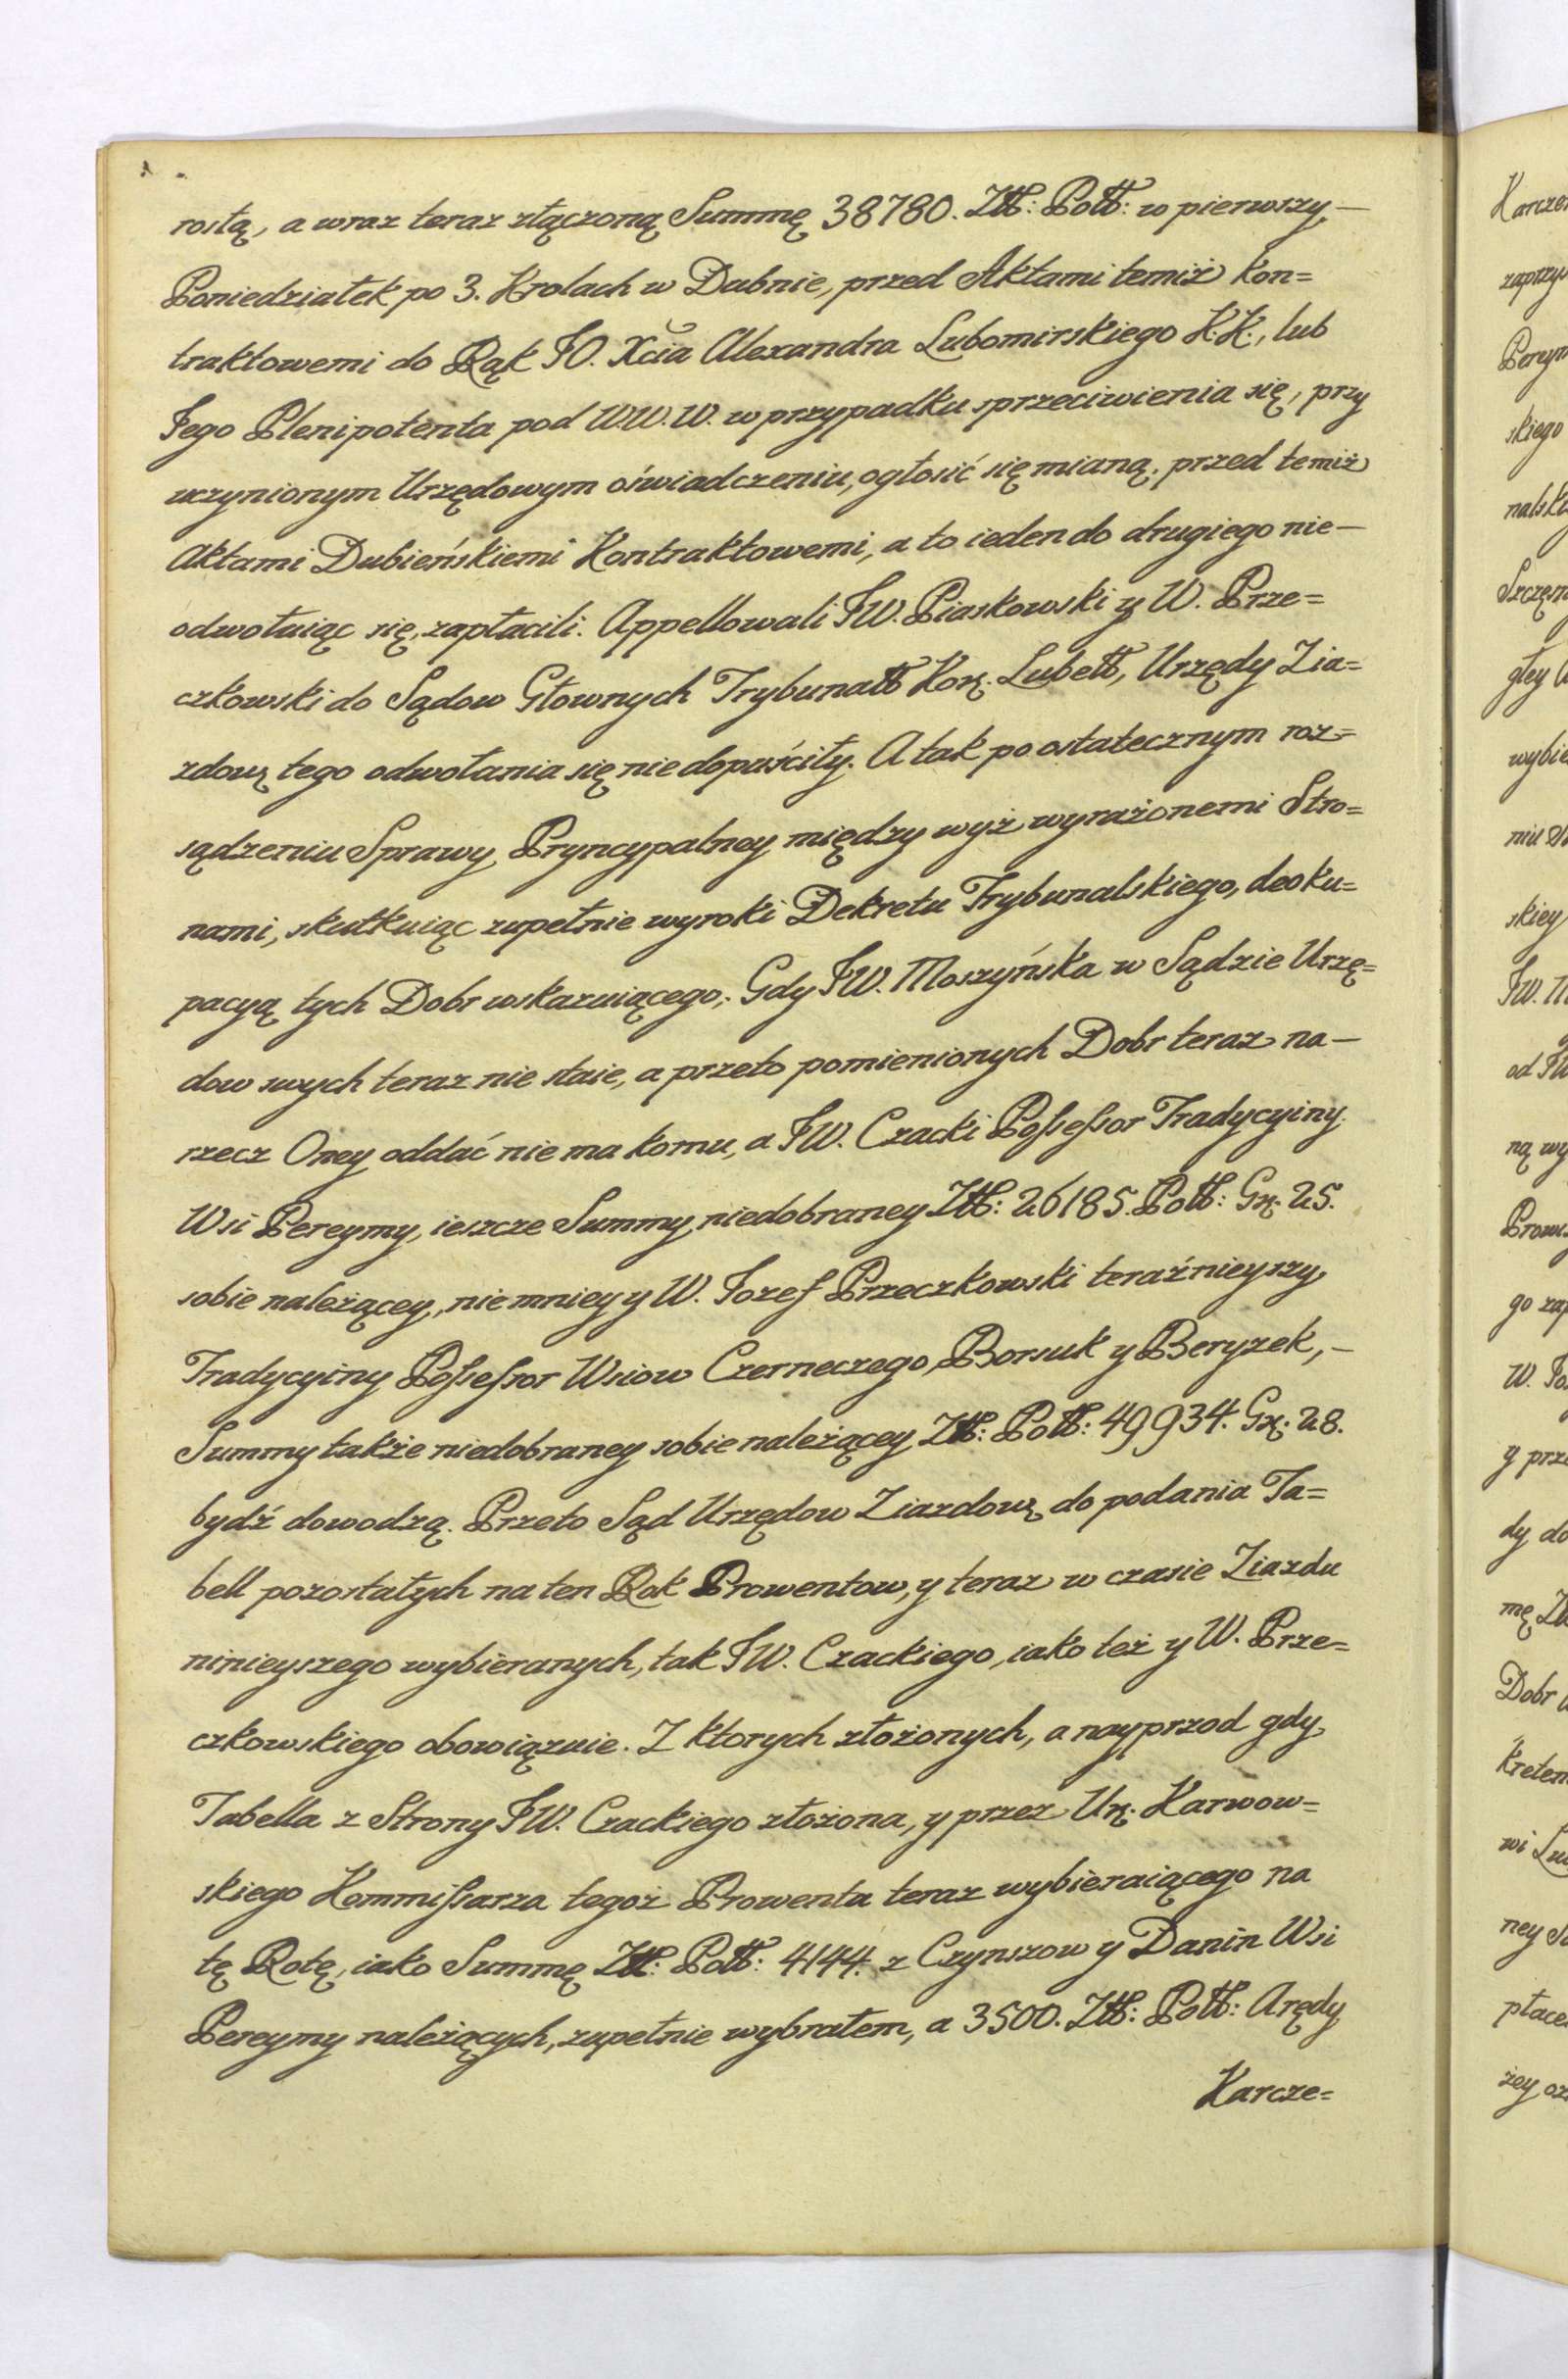 rosłą, a wraz teraz złączoną Summę 38780. Złł: Polł: w pierwszy—
Poniedziałek po 3. Krolach w Dubnie, przed Aktami temiż kon=
traktowemi do Rąk JO. Xcia Alexandra Lubomirskiego K.K., lub
Jego Plenipotenta pod W.W.W. w przypadku sprzeciwienia się, przy
uczynionym Urzędowym oświadczeniu, ogłosić się mianą, przed temiż
Aktami Dubieńskiemi Kontraktowemi, a to ieden do drugiego nie—
odwołuiąc się, zapłacili. Appellowali JW. Piaskowski y W. Prze=
czkowski do Sądow Głownych Trybunałł Kor. Lubełł, Urzędy Zia=
zdow tego odwołania się nie dopuściły. A tak po ostatecznym roz=
sądzeniu Sprawy Pryncypalney między wyż wyrażonemi Stro=
nami, skutkuiąc zupełnie wyroki Dekretu Trybunalskiego, deoku=
pacyą tych Dobr wskazuiącego; Gdy JW. Moszyńska w Sądzie Urzę=
dow swych teraz nie staie, a przeto pomienionych Dobr teraz na—
rzecz Oney oddać nie ma komu, a JW. Czacki Possessor Tradycyiny
Wsi Pereymy, ieszcze Summy niedobraney Złł: 26185. Polł: Gr. 25.
sobie należącey, niemniey y W. Jozef Przeczkowski teraźnieyszy
Tradycyiny Possessor Wsiow Czerneczego, Borsuk y Beryzek,—
Summy także niedobraney sobie należącey Złł: Polł: 49934. Gr. 28.
bydź dowodzą. Przeto Sąd Urzędow Ziazdow do podania Ta=
bell pozostałych na ten Rok Prowentow, y teraz w czasie Ziazdu
ninieyszego wybieranych, tak JW. Czackiego, iako też y W. Prze=
czkowskiego obowiązuie. Z ktorych złożonych, a nayprzod gdy
Tabella z Strony JW. Czackiego złożona, y przez Ur. Karwow=
skiego Kommissarza tegoż Prowenta teraz wybieraiącego na
tę Rotę, iako Summę Złł: Polł: 4144. z Czynszow y Danin Wsi
Pereymy należących, zupełnie wybrałem, a 3500. Złł: Polł: Arędy
Karcze=